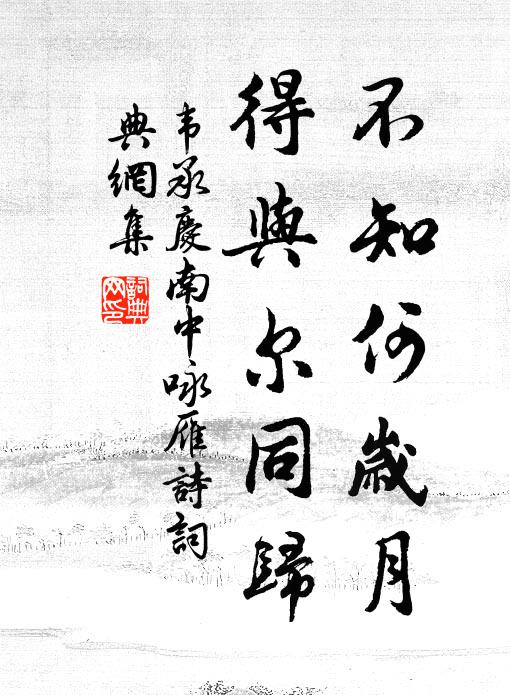 不知何歲月
得與尔同歸
韦承慶南中咏雁詩詞
典網集
詞典网印